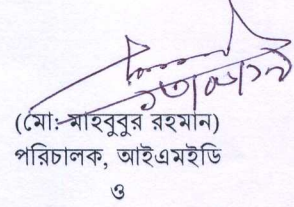 (মো: মাহবুবুর রহমান)
পরিচালক, আইএমইডি
ও